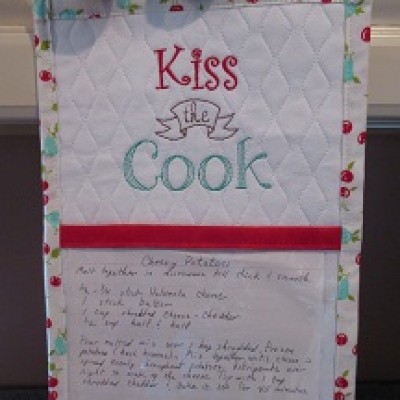 Kiss
the
Cook
Cheesy Potatoes
Melt together in microwave till thick & smooth
stick Velveeta cheese
1 stick butter
1 cup shredded cheese - cheddar
1/2 cup half & half
Pour melted mix over 1 bag shredded, frozen
potatoes (hash browns). Mix together until cheese is
spread evenly throughout potatoes, refrigerate over
night to the cheese. Top with 1 cup
shredded cheddar & bake @ 350 for 45 minutes